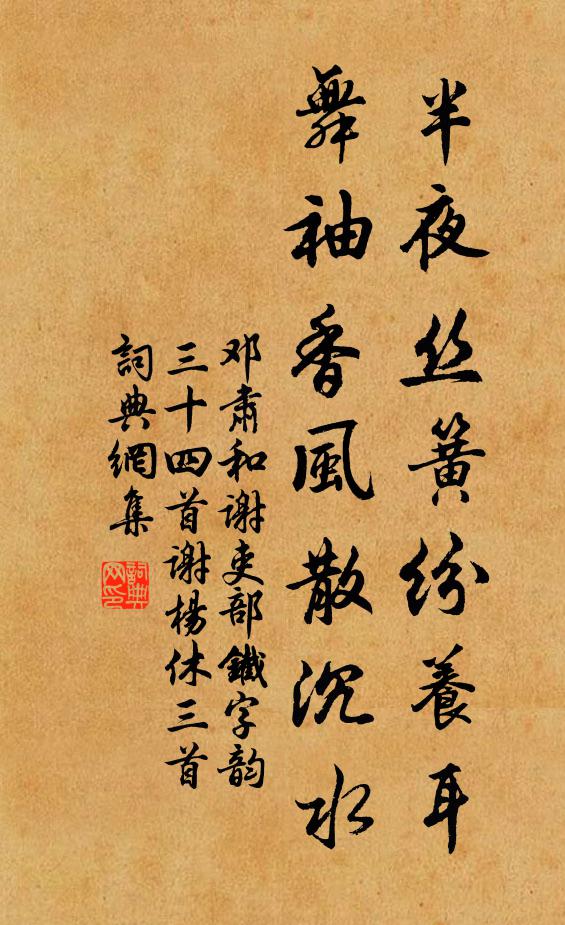 半夜丝簧纷養耳
舞袖香風散沉水
邓肅和谢吏部鐵字韵
三十四首谢楊休三首
詞典網集
詞典网印